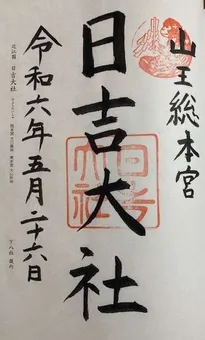 山王総本宮
日吉大社
令和六年五月二十六日
近江國 日吉大社